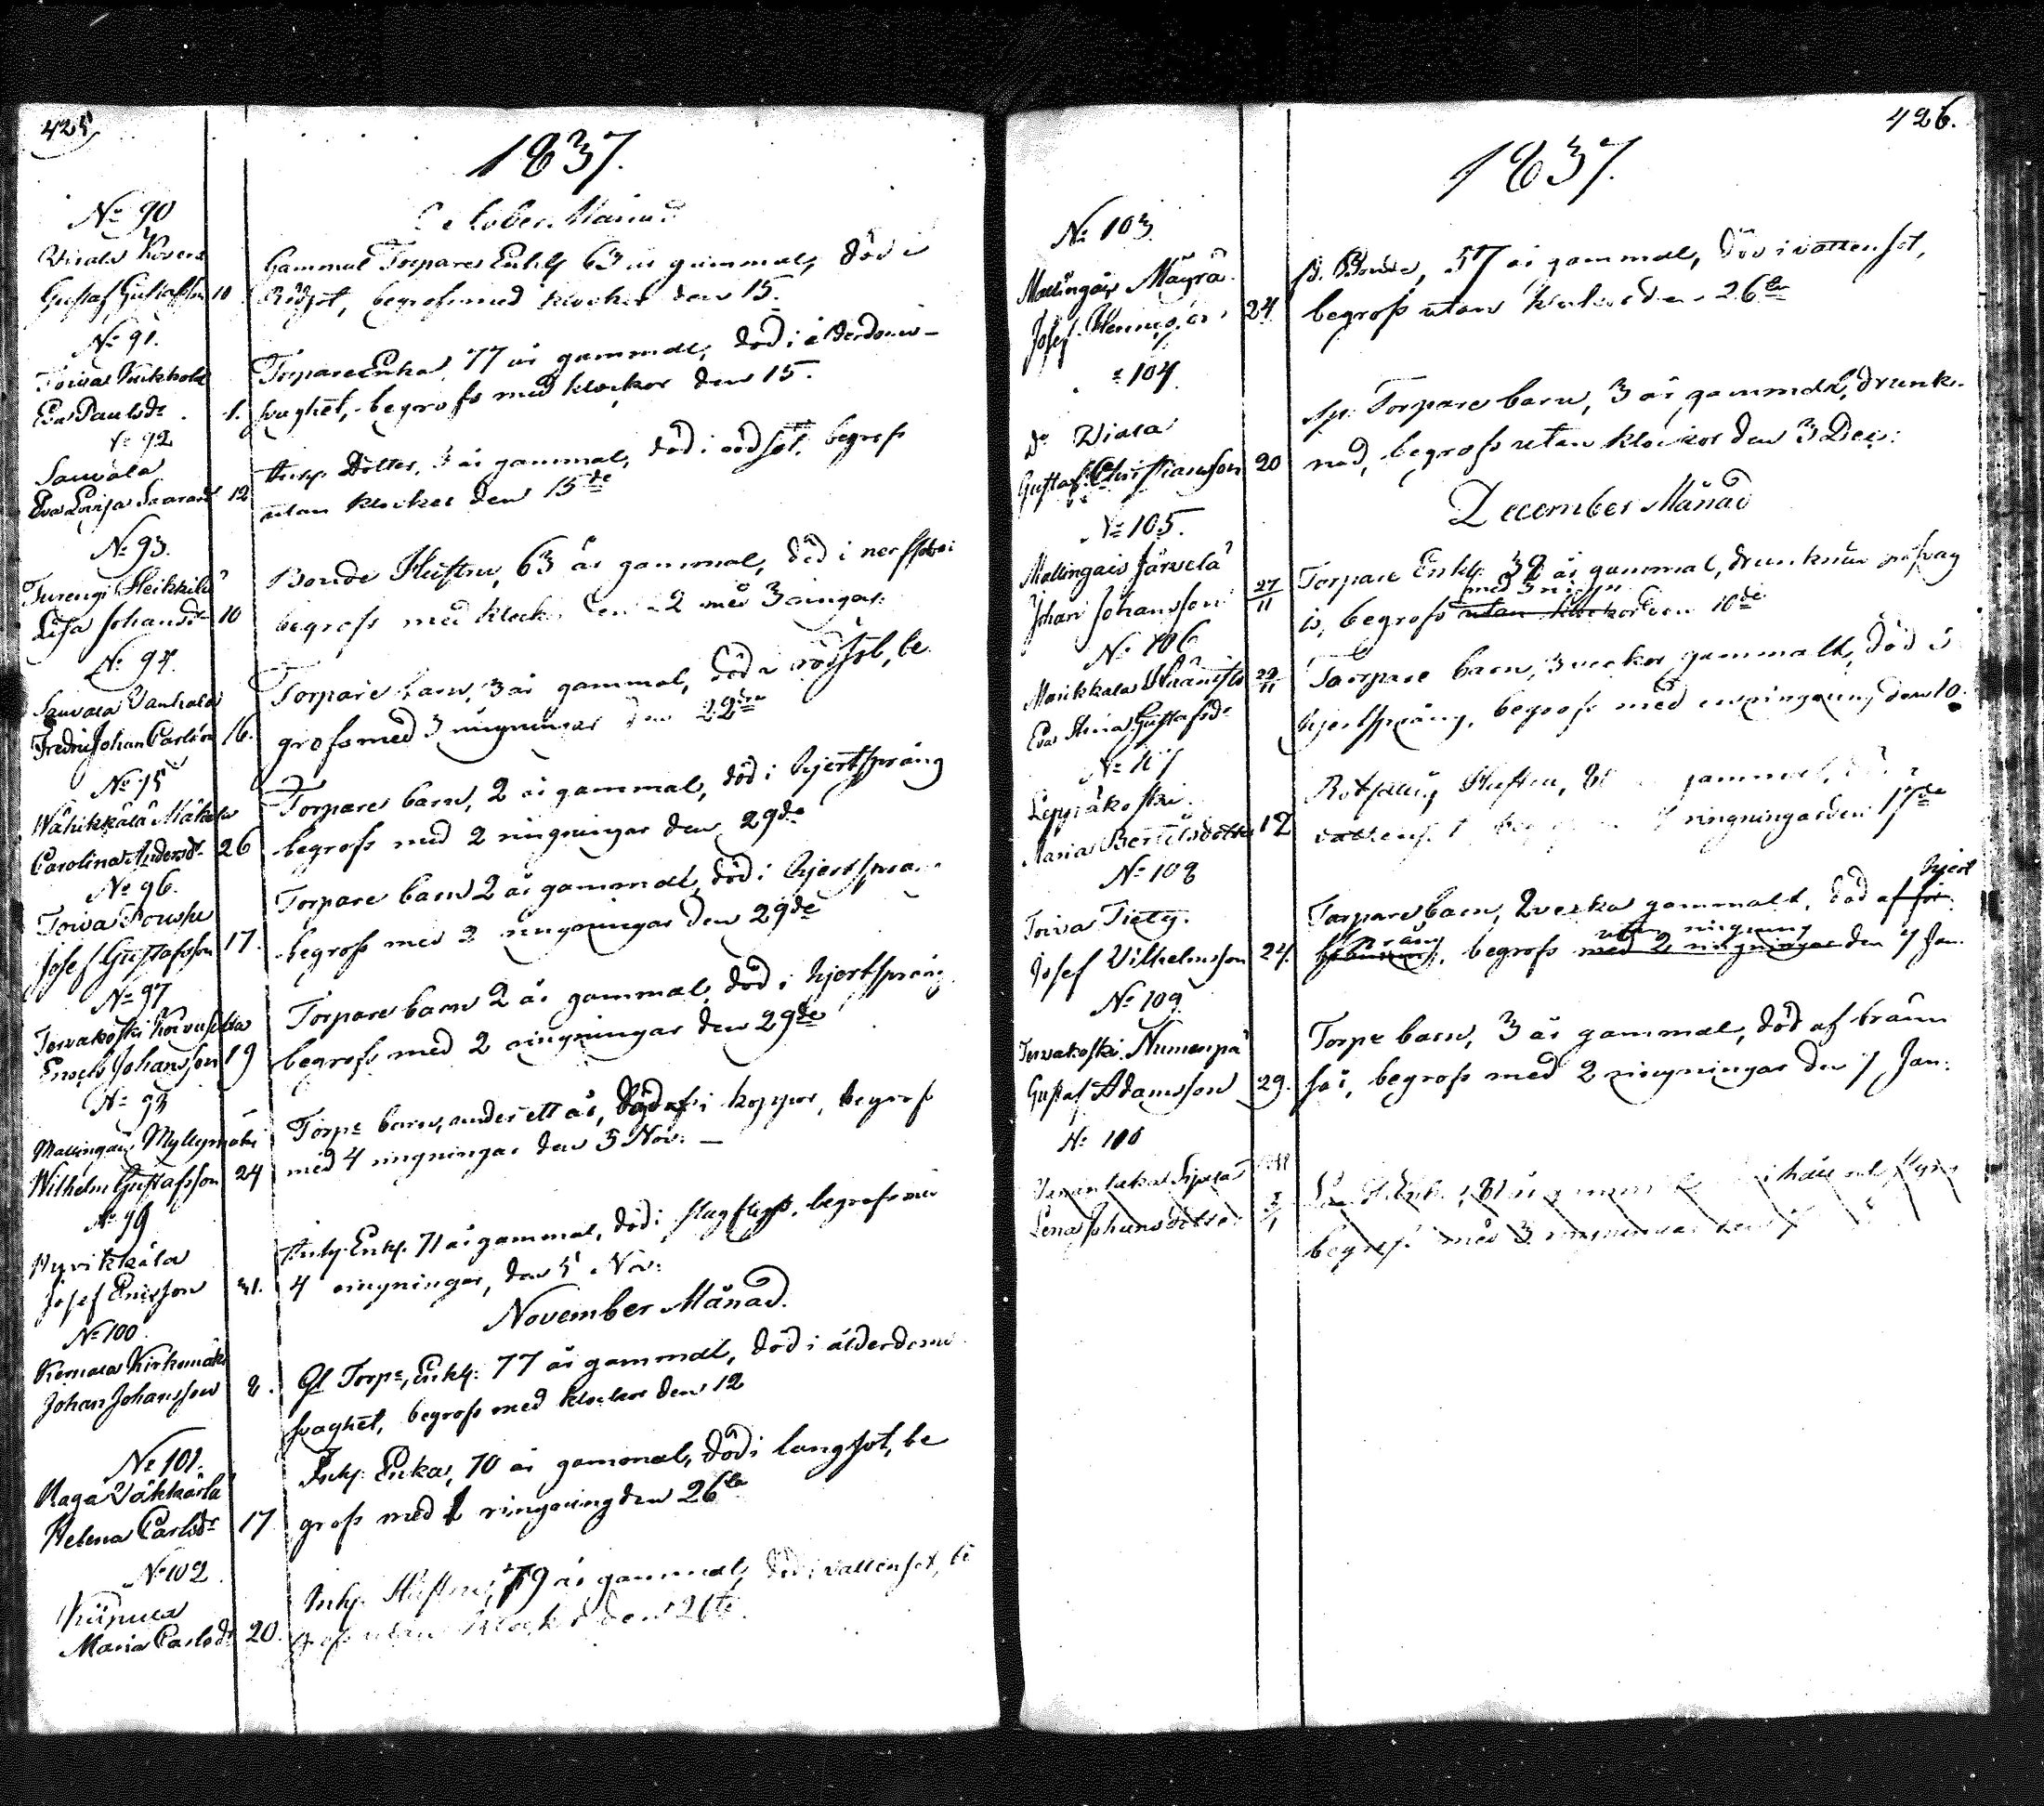 425
1837.
October Månad
No 90
Wiala
Gustaf Gustafsson 10
Gammal Torpare Enkl 63 år gammal, död i
Rödsot, begrofs med klockor den 15.
No 91.
Eva Paulsdr. 1.
Torpare Enka 77 år gammal, död i ålderdoms-
svaghet, begrofs med klockor den 15.
No 92
Sauvala
Eva Lovisa 12
Inhs. Dotter, 3 år gammal, död i rödsot, begrofs
utan klockor den 15de
No 93.
Turengi Heikkilä
Lisa Johansdr 10
Bonde Hustru, 63 år gammal, död i
begrofs med klock. den 22 med 3 ringar:
No 94.
Sauvala Vanhala
Fredric Johan Carlsson 16.
Torpare barn, 3 år gammal, död i rödsot, be
grofs med 3 ringningar den 22dre
No 95
Wähikkälä Mäkelä
Carolina Andersdr 26
Torpare barn, 2 år gammal, död i hjertsprång
begrofs med 2 ringningar den 29de
No 96.
Toiva
Josef Gustafsson 17.
Torpare barn 2 år gammal, död i hjertsprång
begrofs med 2 ringningar den 29de
No 97
Enoch Johansson 19
Torpare barn 2 år gammal, död i hjertsprång
begrofs med 2 ringningar den 29de
No 98
Mallingais Myllymäki
Wilhelm Gustafsson 24
Torpe barn, under ett år, död i koppor, begrofs
med 4 ringningar den 5 Nov: —
No 99
Hyvikkälä
Josef Ericsson 31.
Inhs. Enkl. 71 år gammal, död i slagfluss, begrofs med
4 ringningar, den 5 Nov:
November Månad.
No 100.
Kernala Kirkomäki
Johan Johansson 8.
Gl Torpe, Enkl: 77 år gammal, död i ålderdoms
svaghet, begrofs med klockor den 12
No 101.
Raga
Helena Carlsdr 17
Inhs. Enka, 70 år gammal, död i lungsot, be
grofs med 1 ringning den 26te
No 102
Maria Carlsdr 20.
Inhs. Hustru, 79 år gammal, död i vattensot, be
grofs utan klockor den 26te
426.
1837.
No 103.
Mallingais Mäyrä
Josef 24
Sp. Bonde, 57 år gammal, död i vattensot,
begrofs utan klockor den 26te
" 104.
Do Wiala
Gustaf Christiansson 20
Sp: Torpare barn, 3 år gammal, drunk-
nad, begrofs utan klockor den 3 Dec:
December Månad
No 105.
Mallingais Järvelä
Johan Johansson 27/11
Torpare Enkl: 32 år gammal, drunknad på svag
med 3 ringn
is, begrofs utan klockor den 10de
No 106
Eva Stina Gustafsdr 29/11
Torpare barn, 3 veckor gammalt, död i
hjertsprång, begrofs med en ringning den 10.
No 107
Leppäkoski
Maria Bertilsdotter 12
Hustru, gammal,
ringningar den 17de
No 108
Toiva
Josef Vilhelmsson 24.
Torpare barn, 2 veckor gammalt, död af hjert
språng utan ringning
begrofs med 2 ringningar den 7 Jan.
No 109.
Gustaf Adamsson 29.
Torpe barn, 3 år gammal, död af bränn
sår, begrofs med 2 ringningar den 7 Jan:
No 110
Lena Johansdotter
begrofs med 3 ringningar den 7